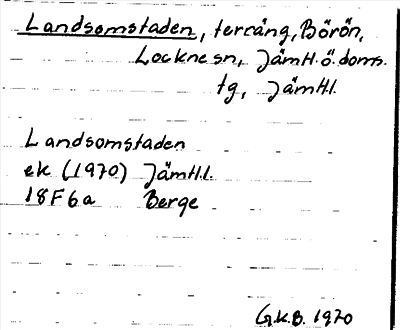 Landsomstaden, terräng, Börön,
Lockne sn, Jämtl. ö. doms.
tg, Jämtl.
Landsomstaden
ek (1970) Jämtl.
18F6a Berge
G.K.B. 1970